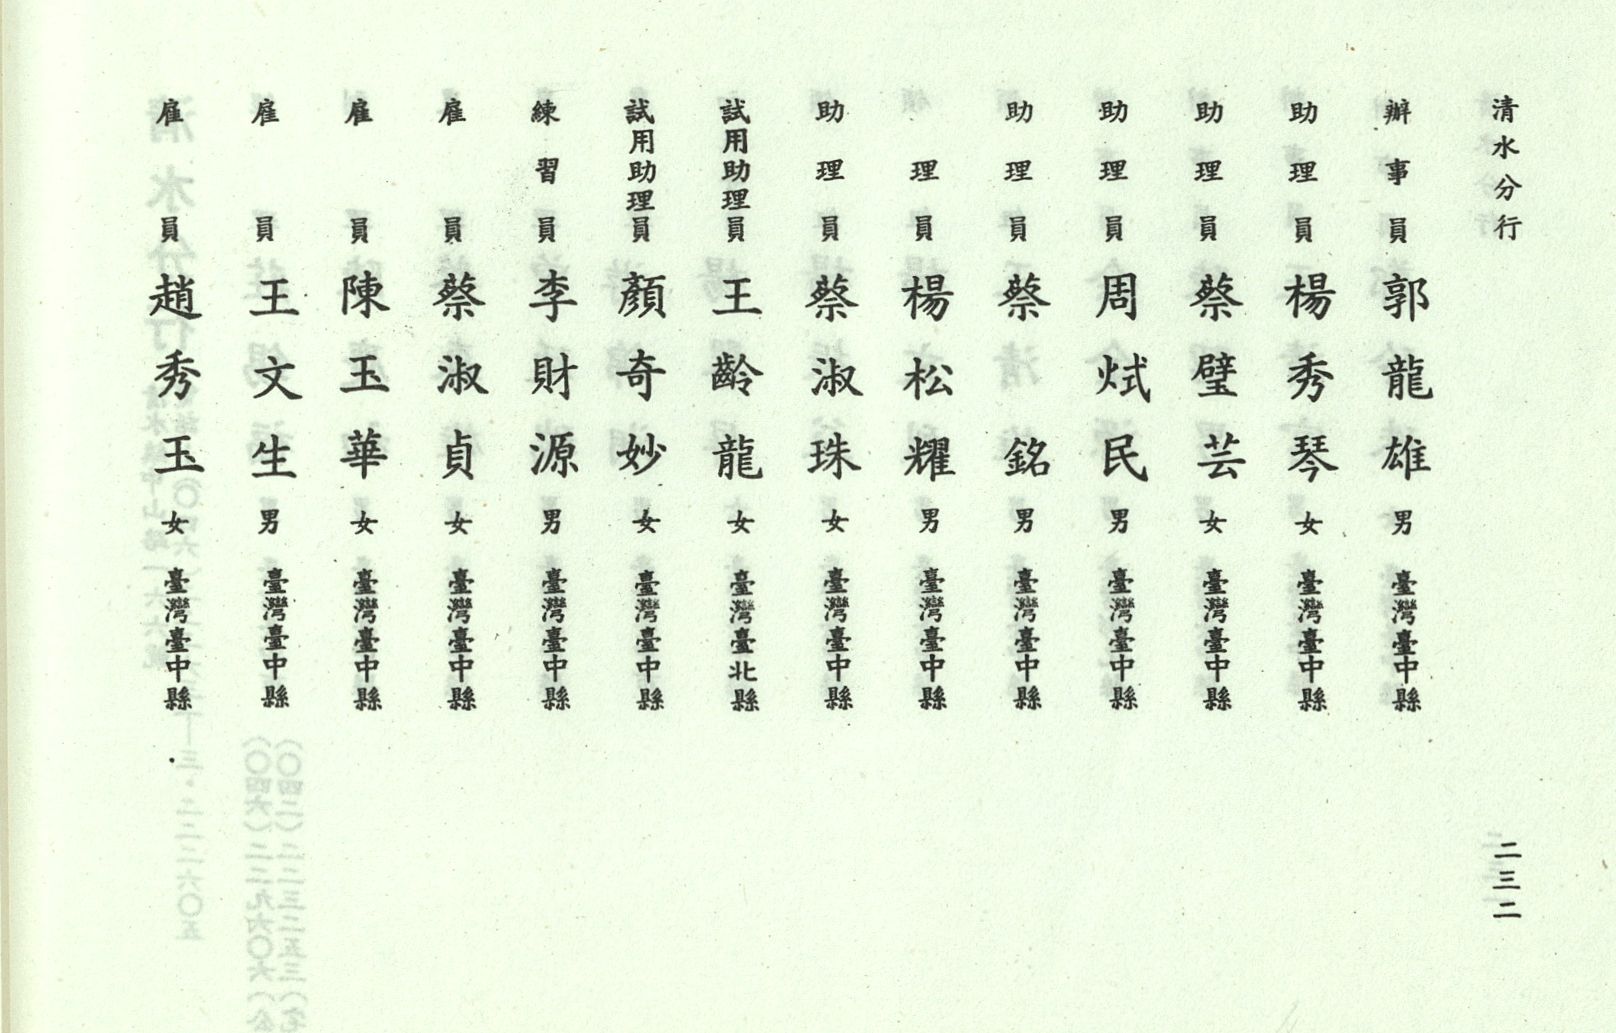 清水分行
辦事員郭龍雄男臺灣臺中縣
助理員楊秀琴女臺灣臺中縣
助理員蔡璧芸女臺灣臺中縣
助理員周烒民男臺灣臺中縣
助理員蔡銘男臺灣臺中縣
理員楊松耀男臺灣臺中縣
助理員蔡淑珠女臺灣臺中縣
試用助理員王齡龍女臺灣臺北縣
試用助理員顏奇妙女臺灣臺中縣
練習員李財源男臺灣臺中縣
雇員蔡淑貞女臺灣臺中縣
雇員陳玉華女臺灣臺中縣
雇員王文生男臺灣臺中縣
雇員趙秀玉女臺灣臺中縣
二三二